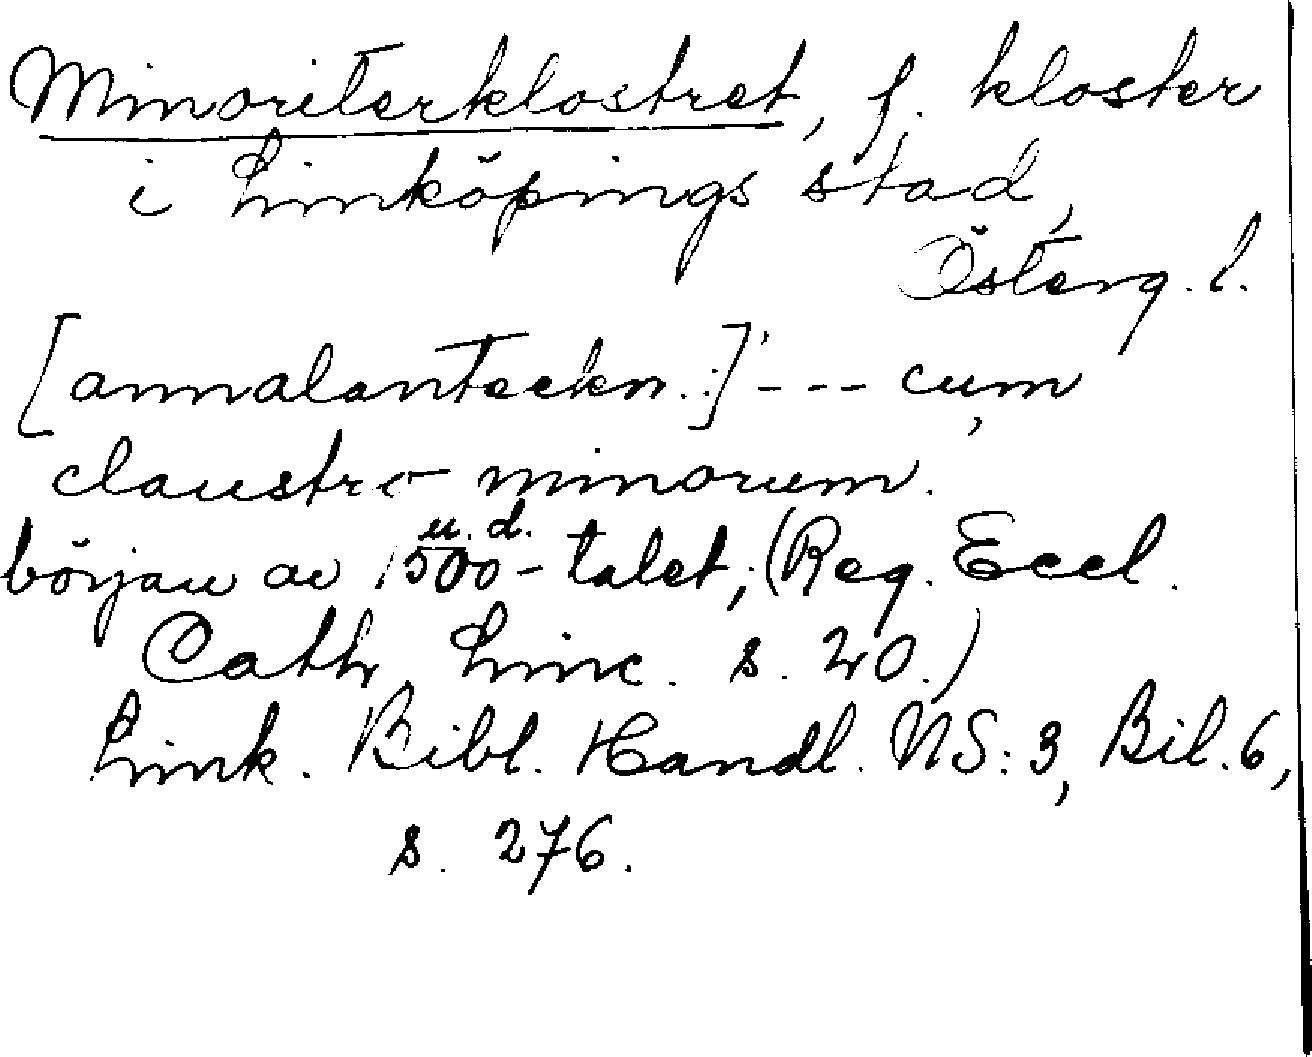 Minoriterklostret, f. kloster
i Linköpings stad,
Österg. l.
[annalanteckn.:] - - - cum
claustro minorum.
u. d.
början av 1500-talet; (Reg. Eccl.
Cath. Linc. s. 20.)
Link. Bibl. Handl. NS: 3, Bil. 6,
s. 276.